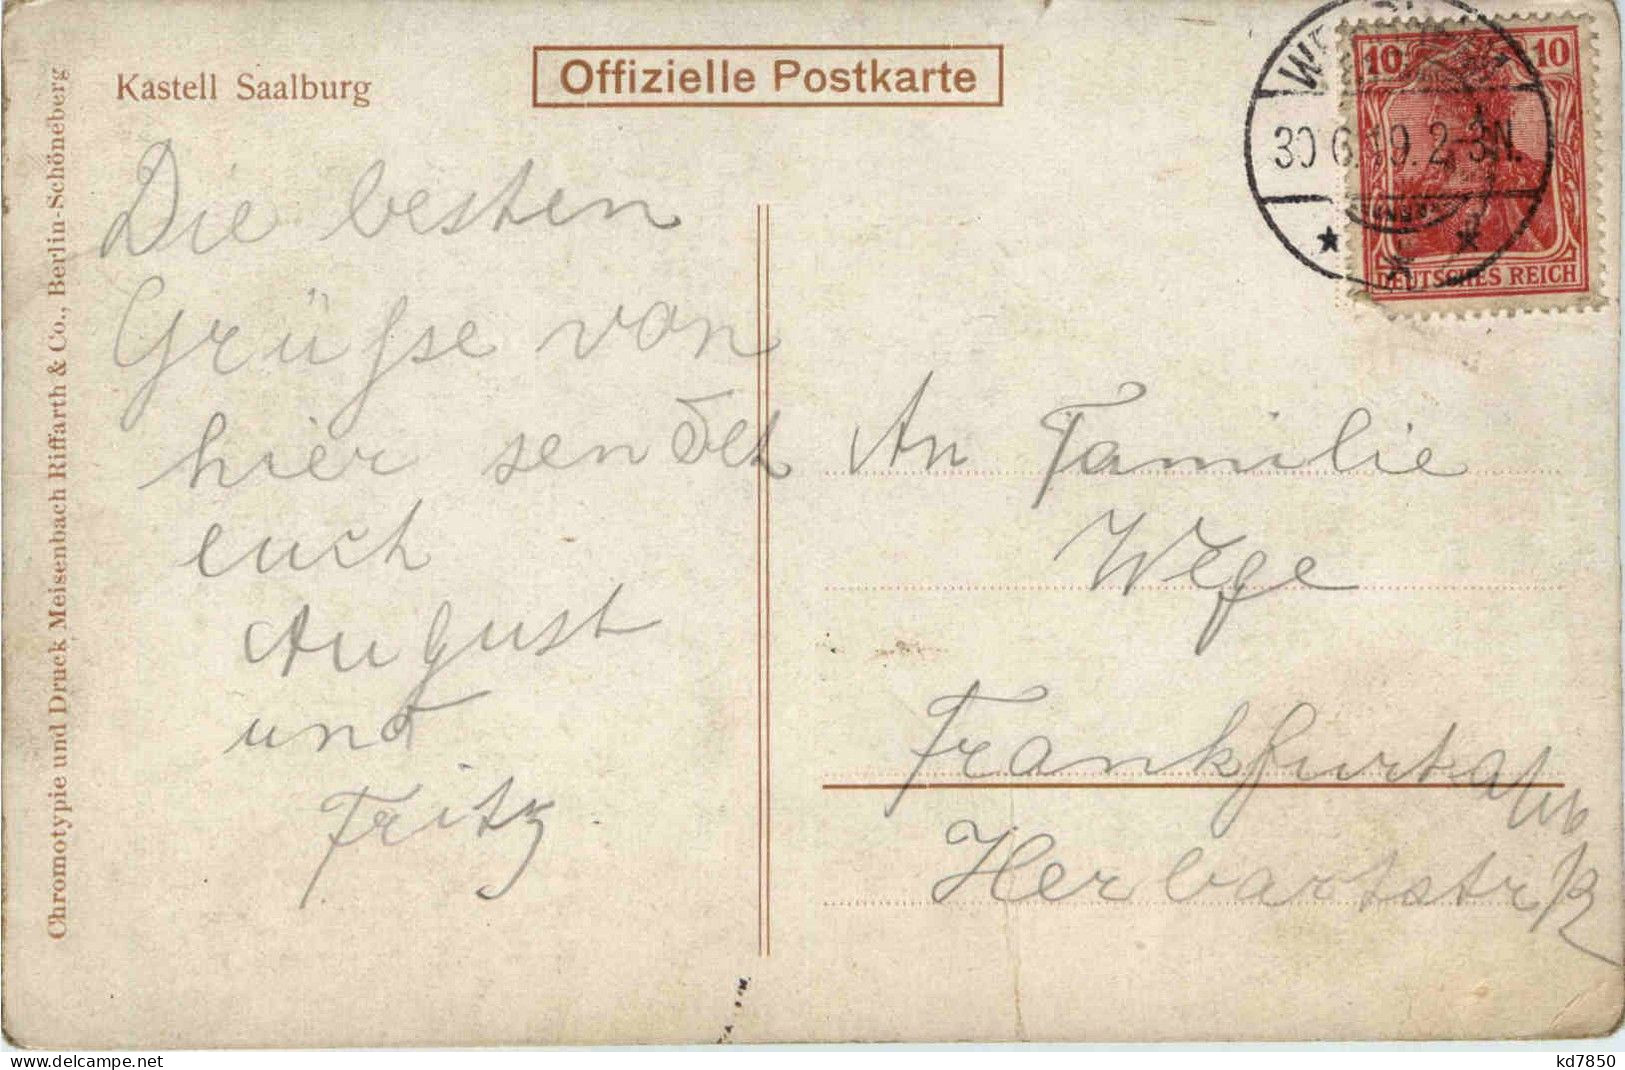 Kastell Saalburg
Offizielle Postkarte
Chromotypie und Druck Meisenbach Riffarth & Co., Berlin-Schöneberg
10 10
30.6.19.2-3N.
DEUTSCHES REICH
Die besten
Grüße von
hier sendet
euch
August
und
Fritz.
An Familie
Wege
Frankfurt a/M
Herbartstr
kd7850